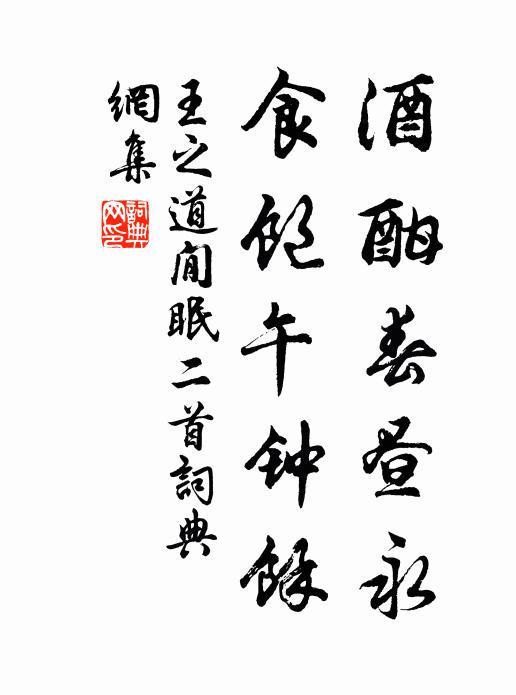 酒酣春昼永
食饱午钟馀
王之道闲眠二首詞典
網集
詞典
网印